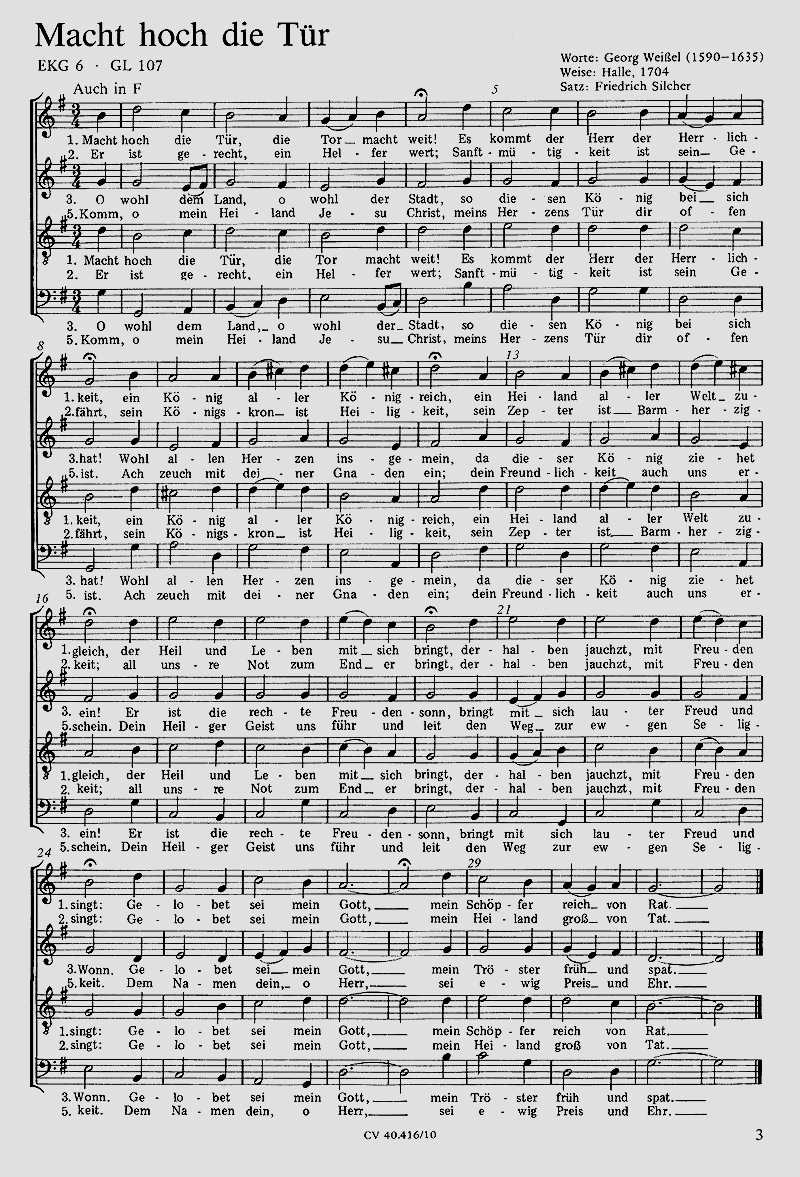 Macht hoch die Tür
EKG 6 · GL 107
Worte: Georg Weißel (1590–1635)
Weise: Halle, 1704
Auch in F
Satz: Friedrich Silcher
5
1. Macht hoch die Tür, die Tor_ macht weit! Es kommt der Herr der Herr - lich -
2. Er ist ge - recht, ein Hel - fer wert; Sanft - mü - tig - keit ist sein_ Ge -
3. O wohl dem Land, o wohl der Stadt, so die - sen Kö - nig bei_ sich
5. Komm, o mein Hei - land Je - su Christ, meins Her - zens Tür dir of - fen
1. Macht hoch die Tür, die Tor macht weit! Es kommt der Herr der Herr - lich -
2. Er ist ge - recht, ein Hel - fer wert; Sanft - mü - tig - keit ist sein Ge -
3. O wohl dem Land,_ o wohl der_ Stadt, so die - sen Kö - nig bei sich
5. Komm, o mein Hei - land Je - su_ Christ, meins Her - zens Tür dir of - fen
8 13
1. keit, ein Kö - nig al - ler Kö - nig - reich, ein Hei - land al - ler Welt_ zu -
2. fährt, sein Kö - nigs - kron_ ist Hei - lig - keit, sein Zep - ter ist_ Barm - her - zig -
3. hat! Wohl al - len Her - zen ins - ge - mein, da die - ser Kö - nig zie - het
5. ist. Ach zeuch mit dei - ner Gna - den ein; dein Freund - lich - keit auch uns er -
1. keit, ein Kö - nig al - ler Kö - nig - reich, ein Hei - land al - ler Welt zu -
2. fährt, sein Kö - nigs - kron_ ist Hei - lig - keit, sein Zep - ter ist_ Barm - her - zig -
3. hat! Wohl al - len Her - zen ins - ge - mein, da die - ser Kö - nig zie - het
5. ist. Ach zeuch mit dei - ner Gna - den ein; dein Freund - lich - keit auch uns er -
16 21
1. gleich, der Heil und Le - ben mit_ sich bringt, der - hal - ben jauchzt, mit Freu - den
2. keit; all uns - re Not zum End_ er bringt, der - hal - ben jauchzt, mit Freu - den
3. ein! Er ist die rech - te Freu - den - sonn, bringt mit_ sich lau - ter Freud und
5. schein. Dein Heil - ger Geist uns führ und leit den Weg_ zur ew - gen Se - lig -
1. gleich, der Heil und Le - ben mit_ sich bringt, der - hal - ben jauchzt, mit Freu - den
2. keit; all uns - re Not zum End_ er bringt, der - hal - ben jauchzt, mit Freu - den
3. ein! Er ist die rech - te Freu - den - sonn, bringt mit sich lau - ter Freud und
5. schein. Dein Heil - ger Geist uns führ und leit den Weg zur ew - gen Se - lig -
24 29
1. singt: Ge - lo - bet sei mein Gott,___ mein Schöp - fer reich_ von Rat.___
2. singt: Ge - lo - bet sei mein Gott,___ mein Hei - land groß_ von Tat.___
3. Wonn. Ge - lo - bet sei_ mein Gott,___ mein Trö - ster früh_ und spat.___
5. keit. Dem Na - men dein,_ o Herr,___ sei e - wig Preis_ und Ehr.___
1. singt: Ge - lo - bet sei mein Gott,___ mein Schöp - fer reich von Rat.___
2. singt: Ge - lo - bet sei mein Gott,___ mein Hei - land groß von Tat.___
3. Wonn. Ge - lo - bet sei mein Gott,___ mein Trö - ster früh und spat.___
5. keit. Dem Na - men dein, o Herr,___ sei e - wig Preis und Ehr.___
CV 40.416/10
3